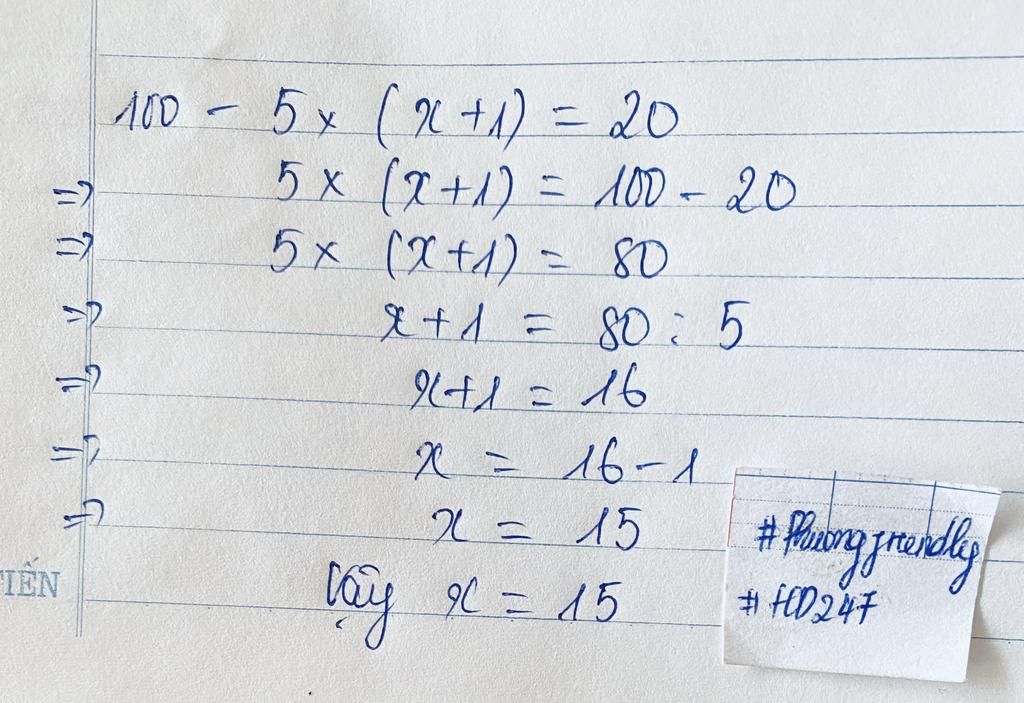 100 - 5 x (x+1) = 20
=> 5 x (x+1) = 100 - 20
=> 5 x (x+1) = 80
=> x+1 = 80 : 5
=> x+1 = 16
=> x = 16 - 1
=> x = 15
Vậy x = 15
TIẾN
#Phuongfriendly
#HD247